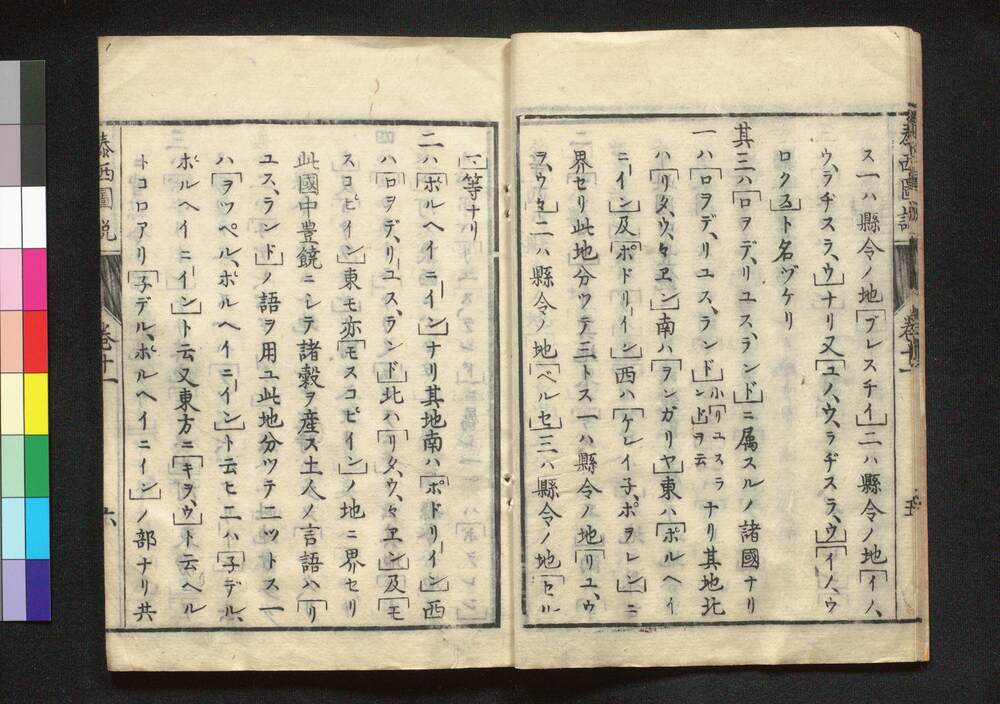 泰西圖説
卷十一
五
ス一ハ縣令ノ地「ブレスチイ」二ハ縣令ノ地「イノ、
ウ、ラヂスラ、ウ」ナリ又「ユノ、ウ、ラヂスラ、ウ」「イノ、ウ
ロクラト名ヅケリ
其三ハ「ロヲデ、リユス、ランド」ニ属スルノ諸國ナリ
一ハ「ロヲデ、リユス、ランド」小リユスランドヲ云ナリ其地北
ハ「リタ、ウ、々ヱン」南ハ「ヲンガリヤ」東ハ「ポルヘイ
ニーイン」及「ポドリーイン」西ハ「ケレイ子、ポヲレン」ニ
界セリ此地分ツテ三トス一ハ縣令ノ地「リユ、ウ
ヲ、ウ々」二ハ縣令ノ地「ベルセ」三ハ縣令ノ地「セル
」等ナリ
二ハ「ポルヘイニーイン」ナリ其地南ハ「ポドリーイン」西
ハ「ロヲデ、リユス、ランド」北ハ「リタ、ウ、々ヱン」及「モ
スコビイン」東モ亦「モスコビイン」ノ地ニ界セリ
此國中豊饒ニシテ諸穀ヲ産ス土人ノ言語ハ「リ
ユス、ランド」ノ語ヲ用ユ此地分ツテ二ツトス一
ハ「ヲツペル、ポルヘイニーイン」ト云ヒ二ハ「子デル、
ポルヘイニーイン」ト云又東方ニ「キヲ、ウ」ト云ヘル
トコロアリ「子デル、ポルヘイニイン」ノ部ナリ共
泰西圖説
卷十一
六